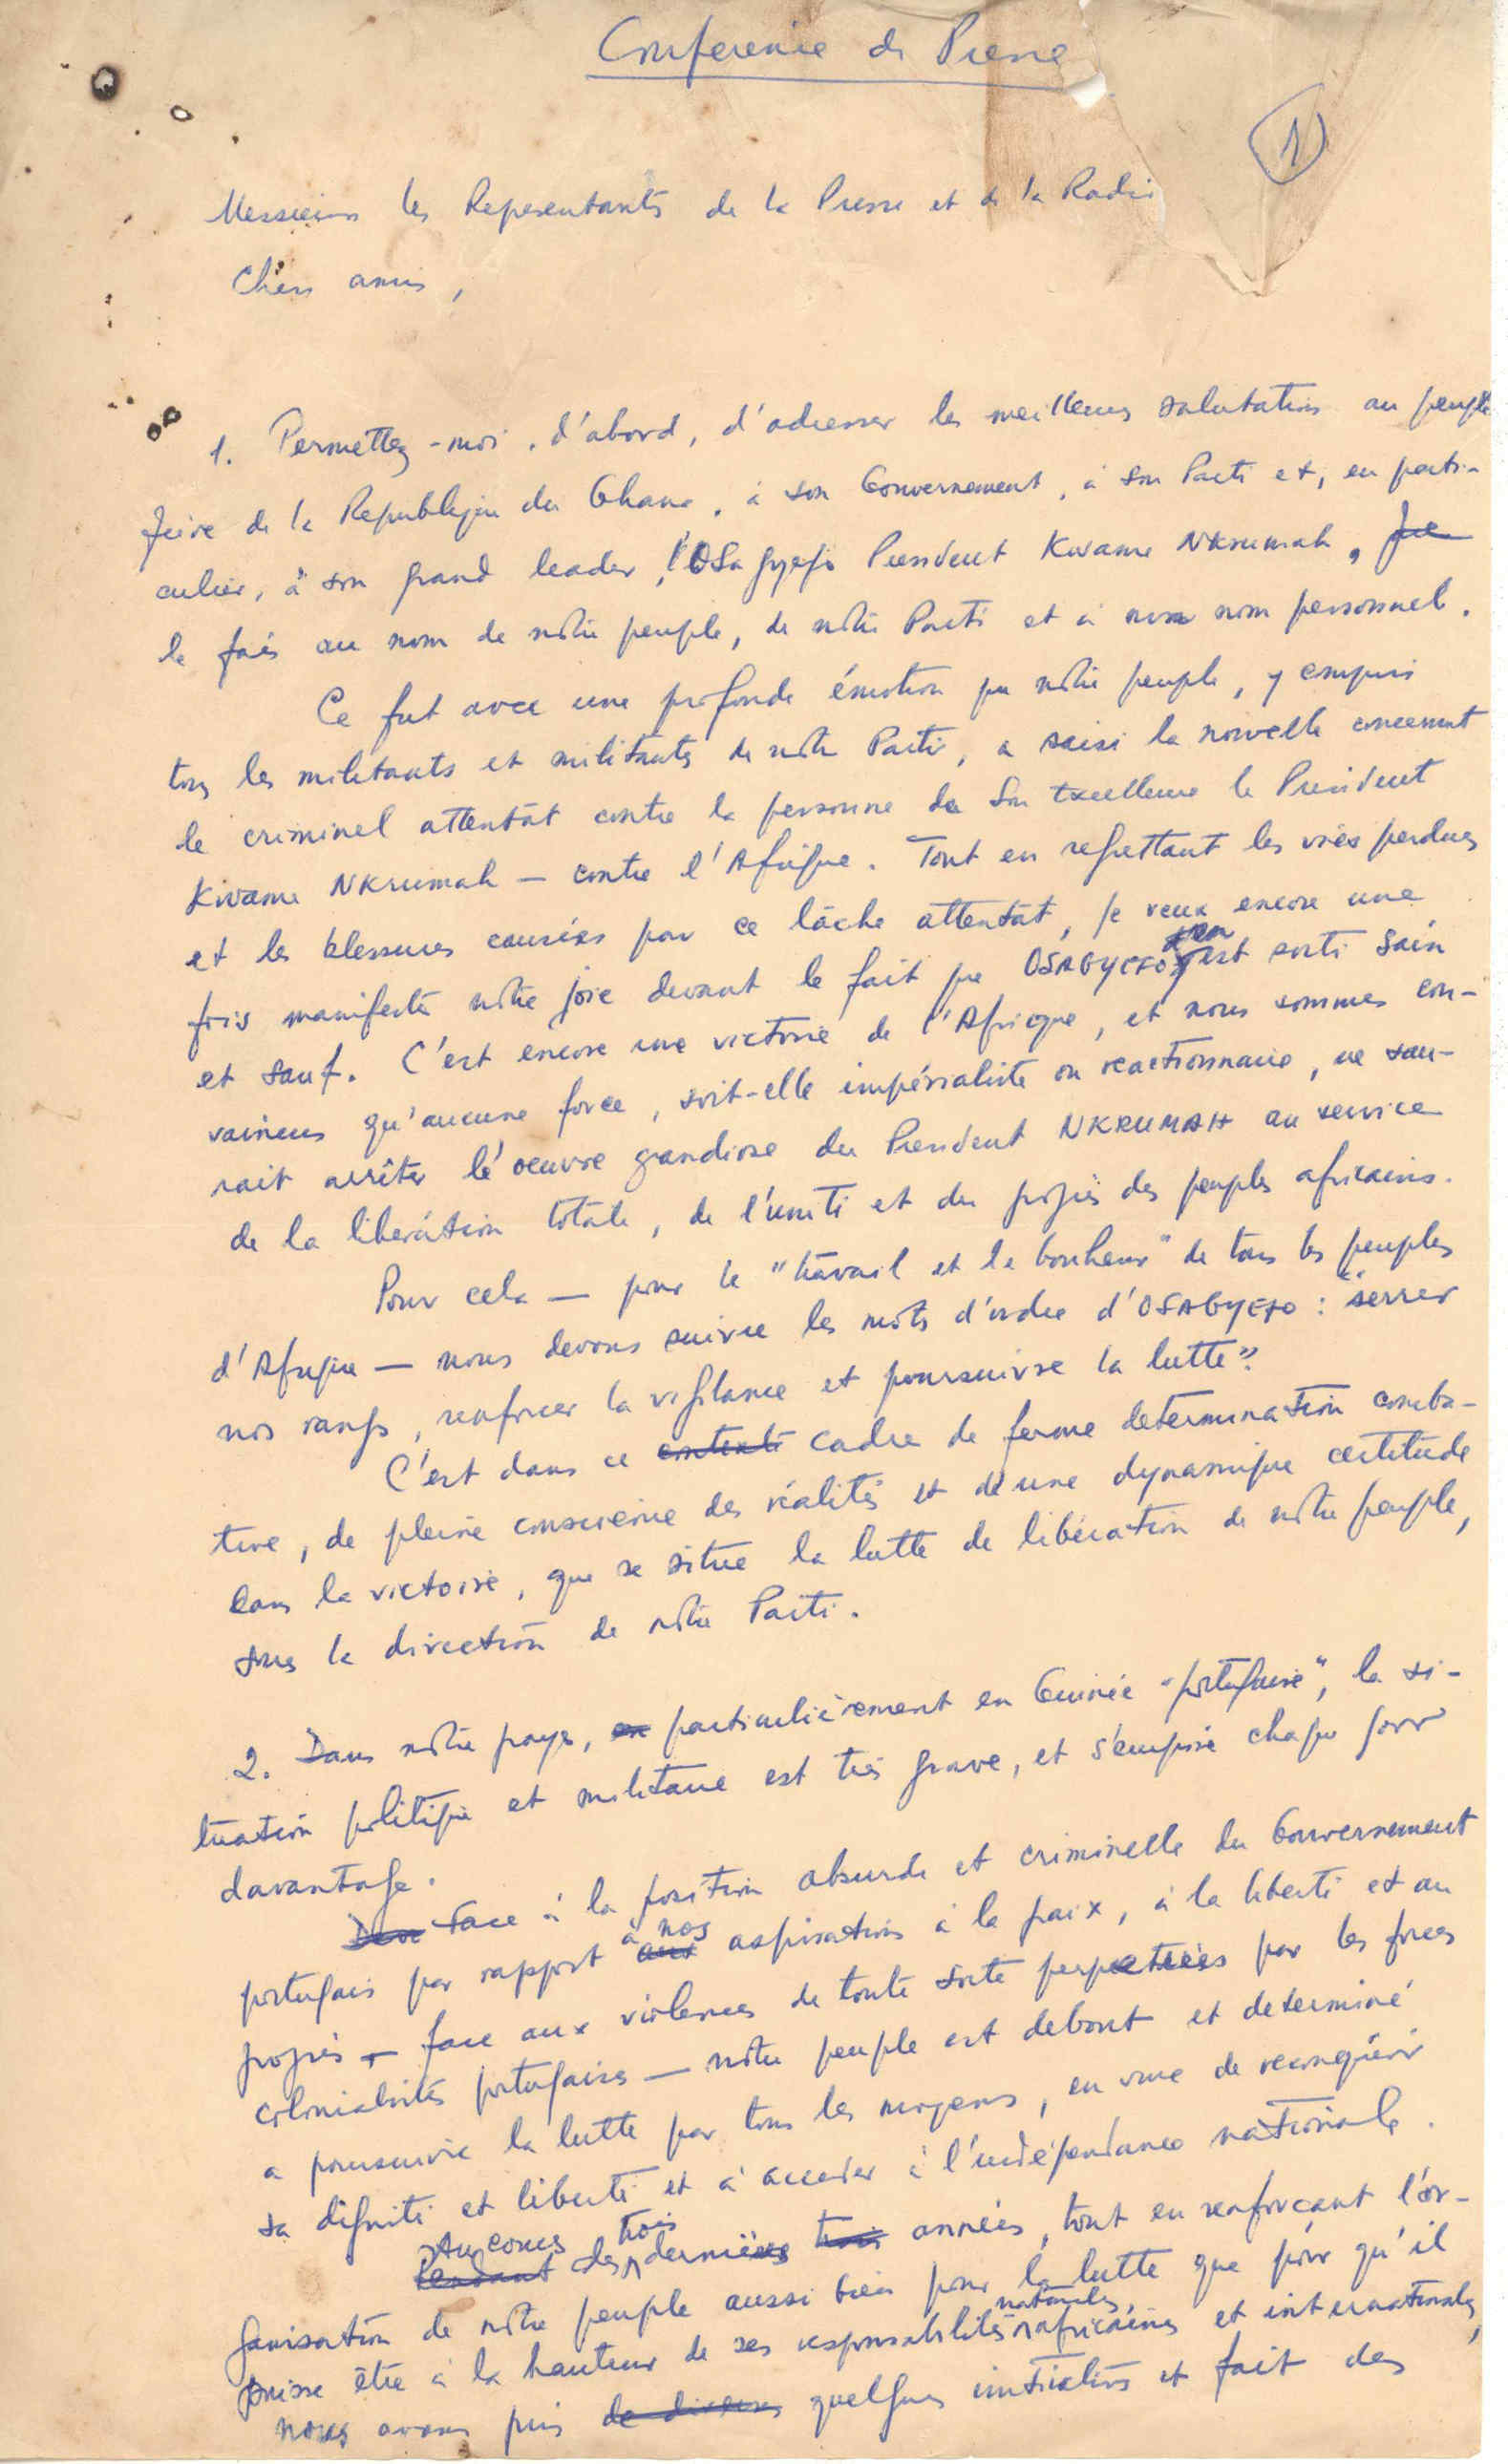 Conference de Presse
1
Messieurs les Representants de la Presse et de la Radio
Chers amis,
1. Permettez-moi, d'abord, d'adresser les meilleurs salutations au peuple
frère de la Republique du Ghana, à son Gouvernement, à son Parti et, en parti-
culier, à son grand leader, l'OSagyefo President Kwame NKrumah, je
le fais au nom de nôtre peuple, de nôtre Parti et à mon nom personnel.
Ce fut avec une profonde émotion que nôtre peuple, y compris
tous les militants et militants de nôtre Parti, a saisi la nouvelle concernant
le criminel attentat contre la personne de Son Excellence le President
Kwame NKrumah — contre l'Afrique. Tout en regrettant les vies perdues
et les blessures causées par ce lâche attentat, je veux encore une
fois manifester nôtre joie devant le fait que OSAGYEFO s'en est sorti sain
et sauf. C'est encore une victoire de l'Afrique, et nous sommes con-
vaincus qu'aucune force, soit-elle impérialiste ou reactionnaire, ne sau-
rait arrêter l'oeuvre grandiose du President NKRUMAH au service
de la libération totale, de l'unité et du progrès des peuples africains.
Pour cela — pour le "travail et le bonheur" de tous les peuples
d'Afrique — nous devons suivre les mots d'ordre d'OSAGYEFO: "serrer
nos rangs, renforcer la vigilance et poursuivre la lutte".
C'est dans ce contexte cadre de ferme determination comba-
tive, de pleine conscience des réalités et d'une dynamique certitude
dans la victoire, que se situe la lutte de libération de nôtre peuple,
sous la direction de nôtre Parti.
2. Dans nôtre pays, en particulièrement en Guinée "portugaise", la si-
tuation politique et militaire est très grave, et s'empire chaque jour
davantage.
Face à la position absurde et criminelle du Gouvernement
portugais par rapport aux à nos aspirations à la paix, à la liberté et au
progrès — face aux violences de toute sorte perpetrées par les forces
colonialistes portugaises — nôtre peuple est debout et determiné
a poursuivre la lutte par tous les moyens, en vue de reconquérir
sa dignité et liberté et à acceder à l'indépendance nationale.
Pendant Au cours des trois dernières trois années, tout en renforcant l'or-
ganisation de nôtre peuple aussi bien pour la lutte que pour qu'il
puisse être à la hauteur de ses responsabilités nationales, africaines et internationales,
nous avons pris de diverses quelques initiatives et fait des